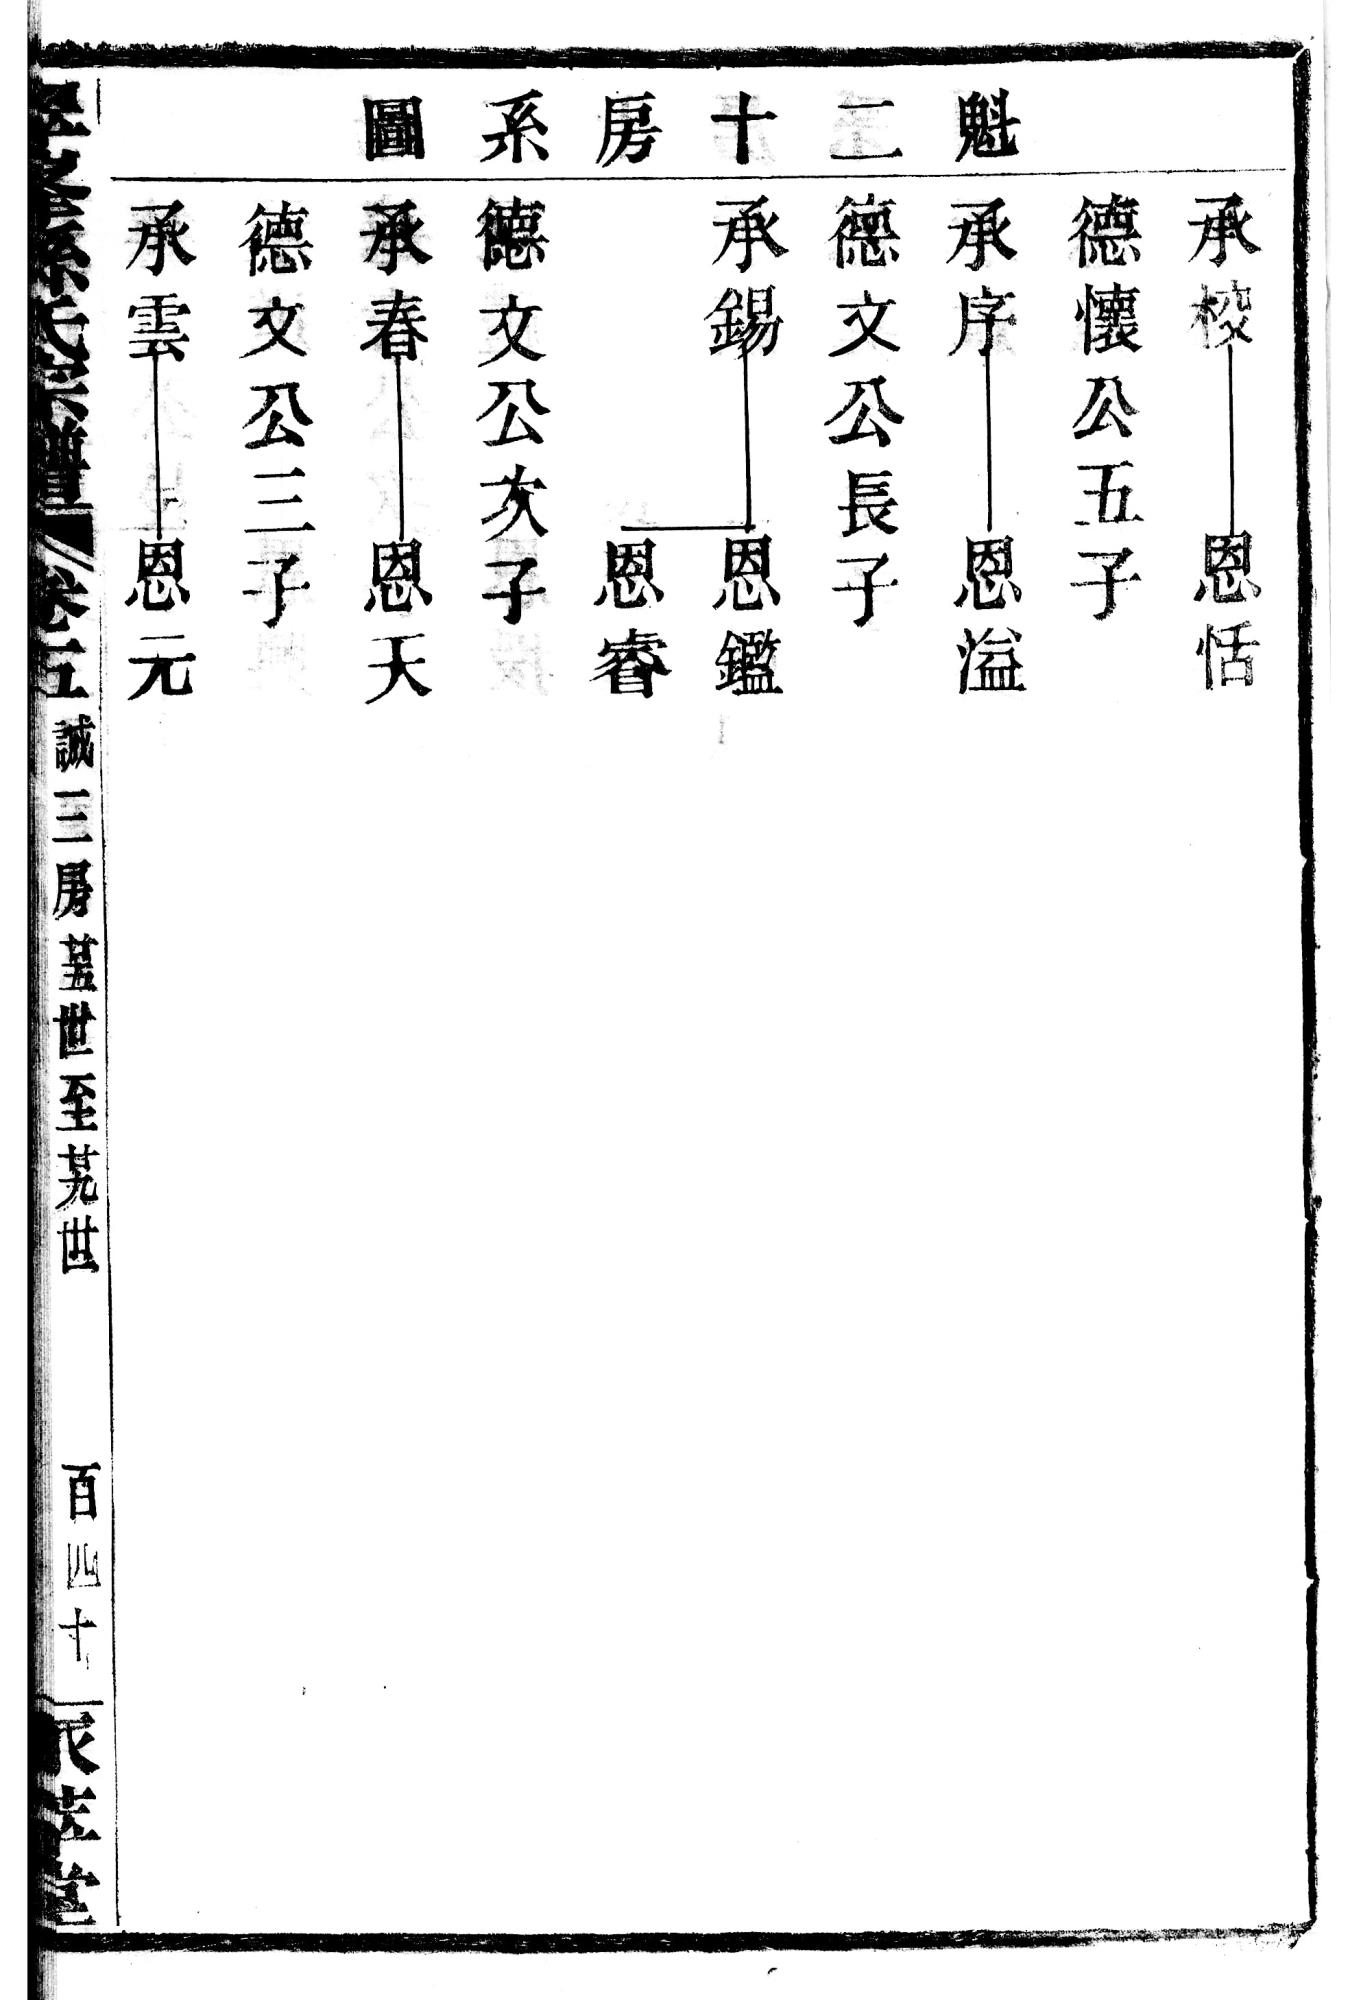 魁二十房系圖
承梭 恩恬
德懷公五子
承序 恩溢
德文公長子
承錫 恩鑑
恩睿
德文公次子
承春 恩天
德文公三子
承雲 恩元
孫氏宗譜 卷五 誠三房 廿五世至廿九世 百四十 堂